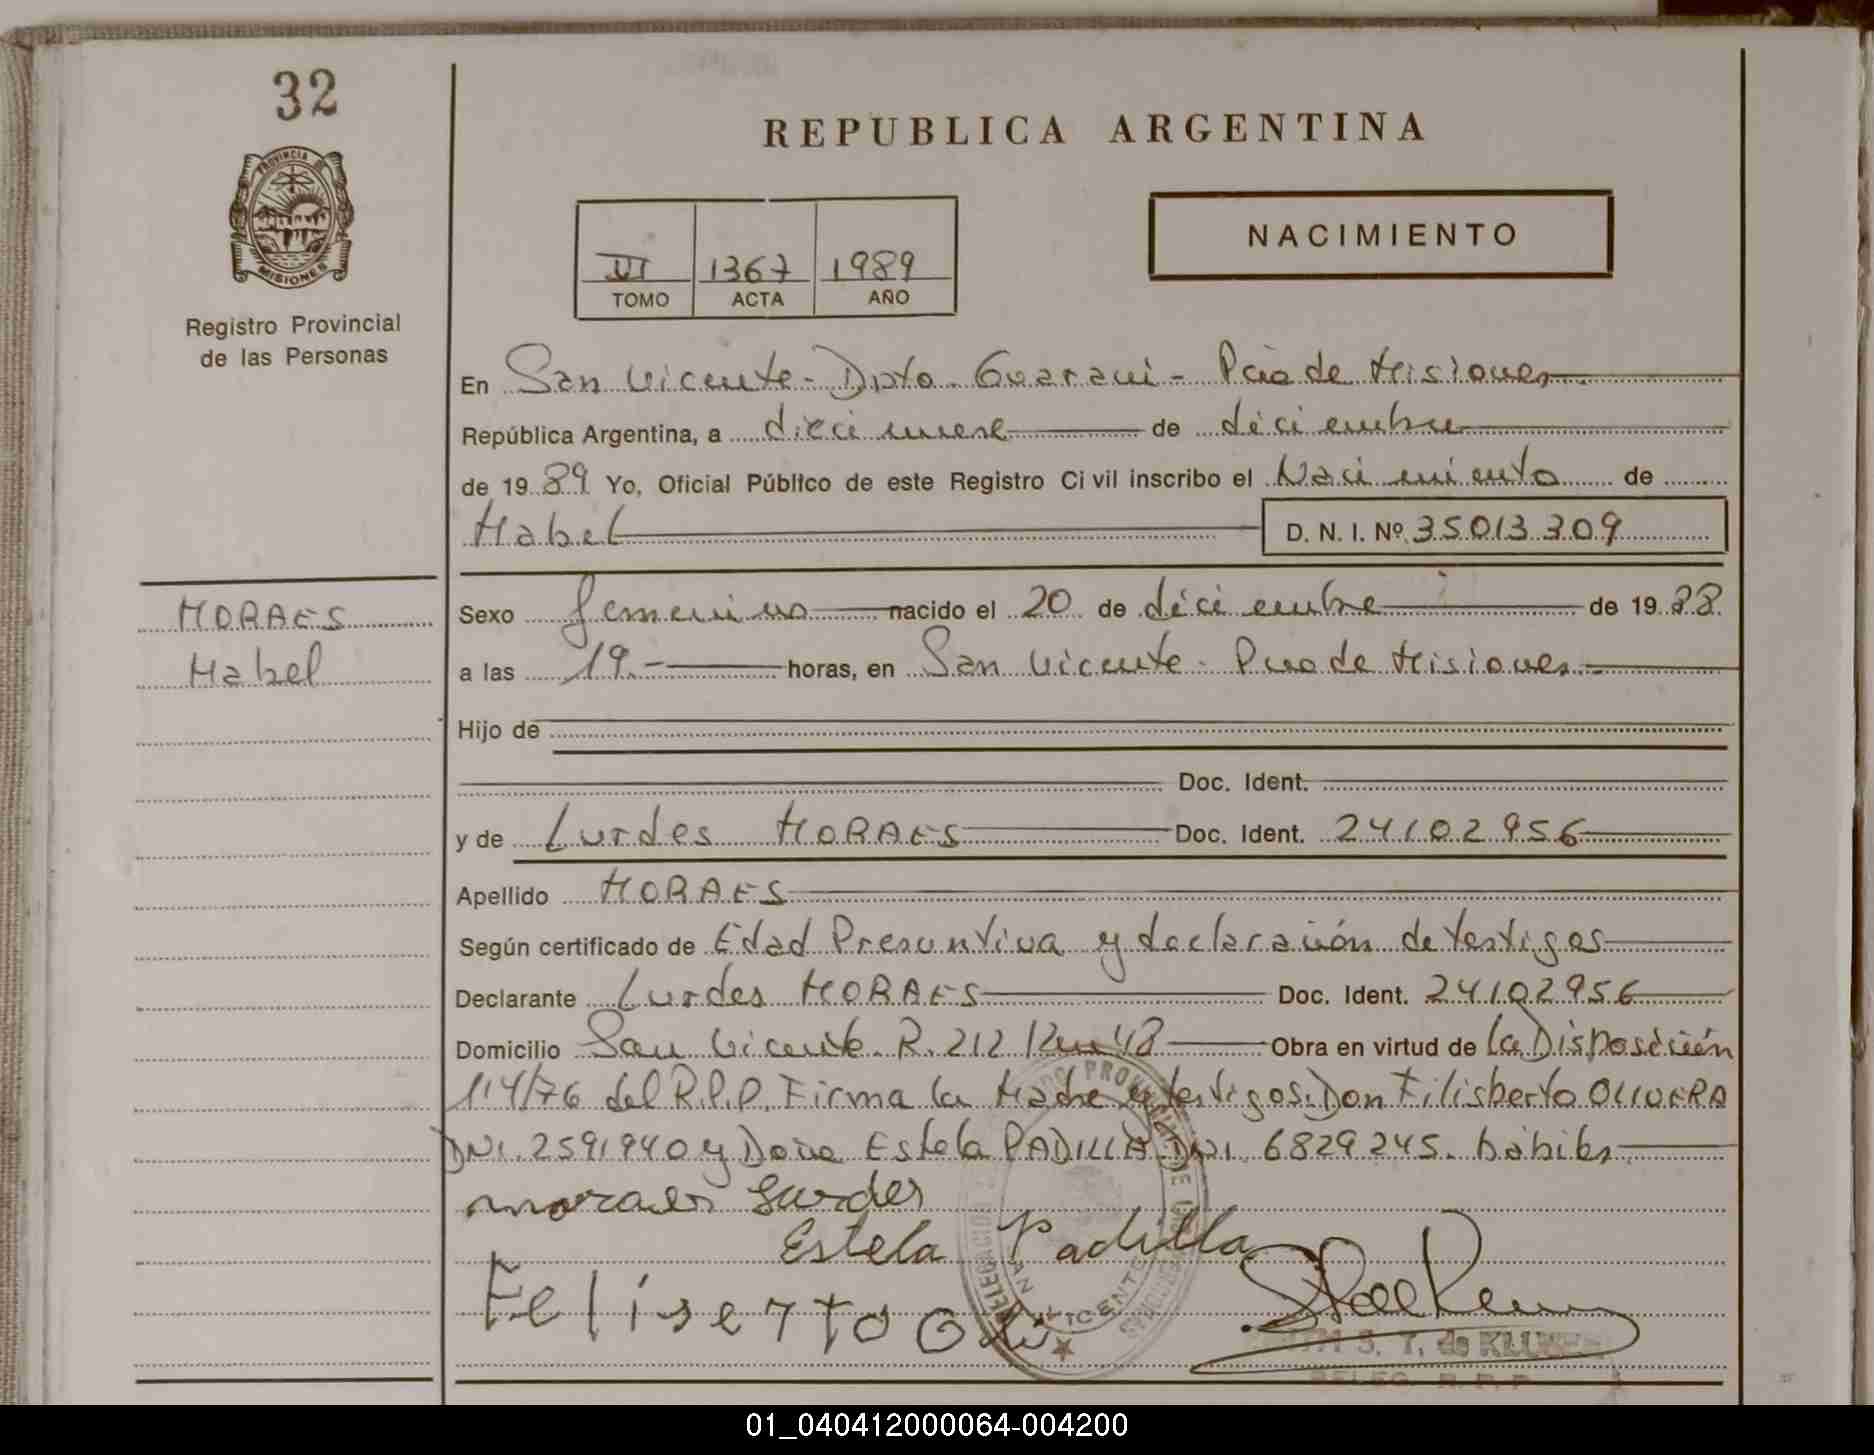 32
PROVINCIA DE
MISIONES
Registro Provincial
de las Personas
REPUBLICA ARGENTINA
NACIMIENTO
VI 1367 1989
TOMO ACTA AÑO
En San Vicente - Dpto. Guarani - Pcia de Misiones
República Argentina, a diecinueve de diciembre
de 1989 Yo, Oficial Público de este Registro Civil inscribo el Nacimiento de
Mabel D. N. I. Nº 35013309
MORAES
Mabel
Sexo femenino nacido el 20 de diciembre de 1988
a las 19.- horas, en San Vicente - Pcia de Misiones
Hijo de
Doc. Ident.
y de Lurdes MORAES Doc. Ident. 24102956
Apellido MORAES
Según certificado de Edad Presuntiva y declaración de testigos
Declarante Lurdes MORAES Doc. Ident. 24102956
Domicilio San Vicente. R. 212 Km 48 Obra en virtud de la Disposición
114/76 del R.P.P. Firma la Madre y testigos: Don Filisberto OLIVERA
DNI. 2591940 y Doña Estela PADILLA DNI. 6829245. hábiles
moraes Lurdes
Estela Padilla
Feliserto Oli
DELEGACION
SAN VICENTE
S. T. de
DELEG. R. P. P.
01_040412000064-004200